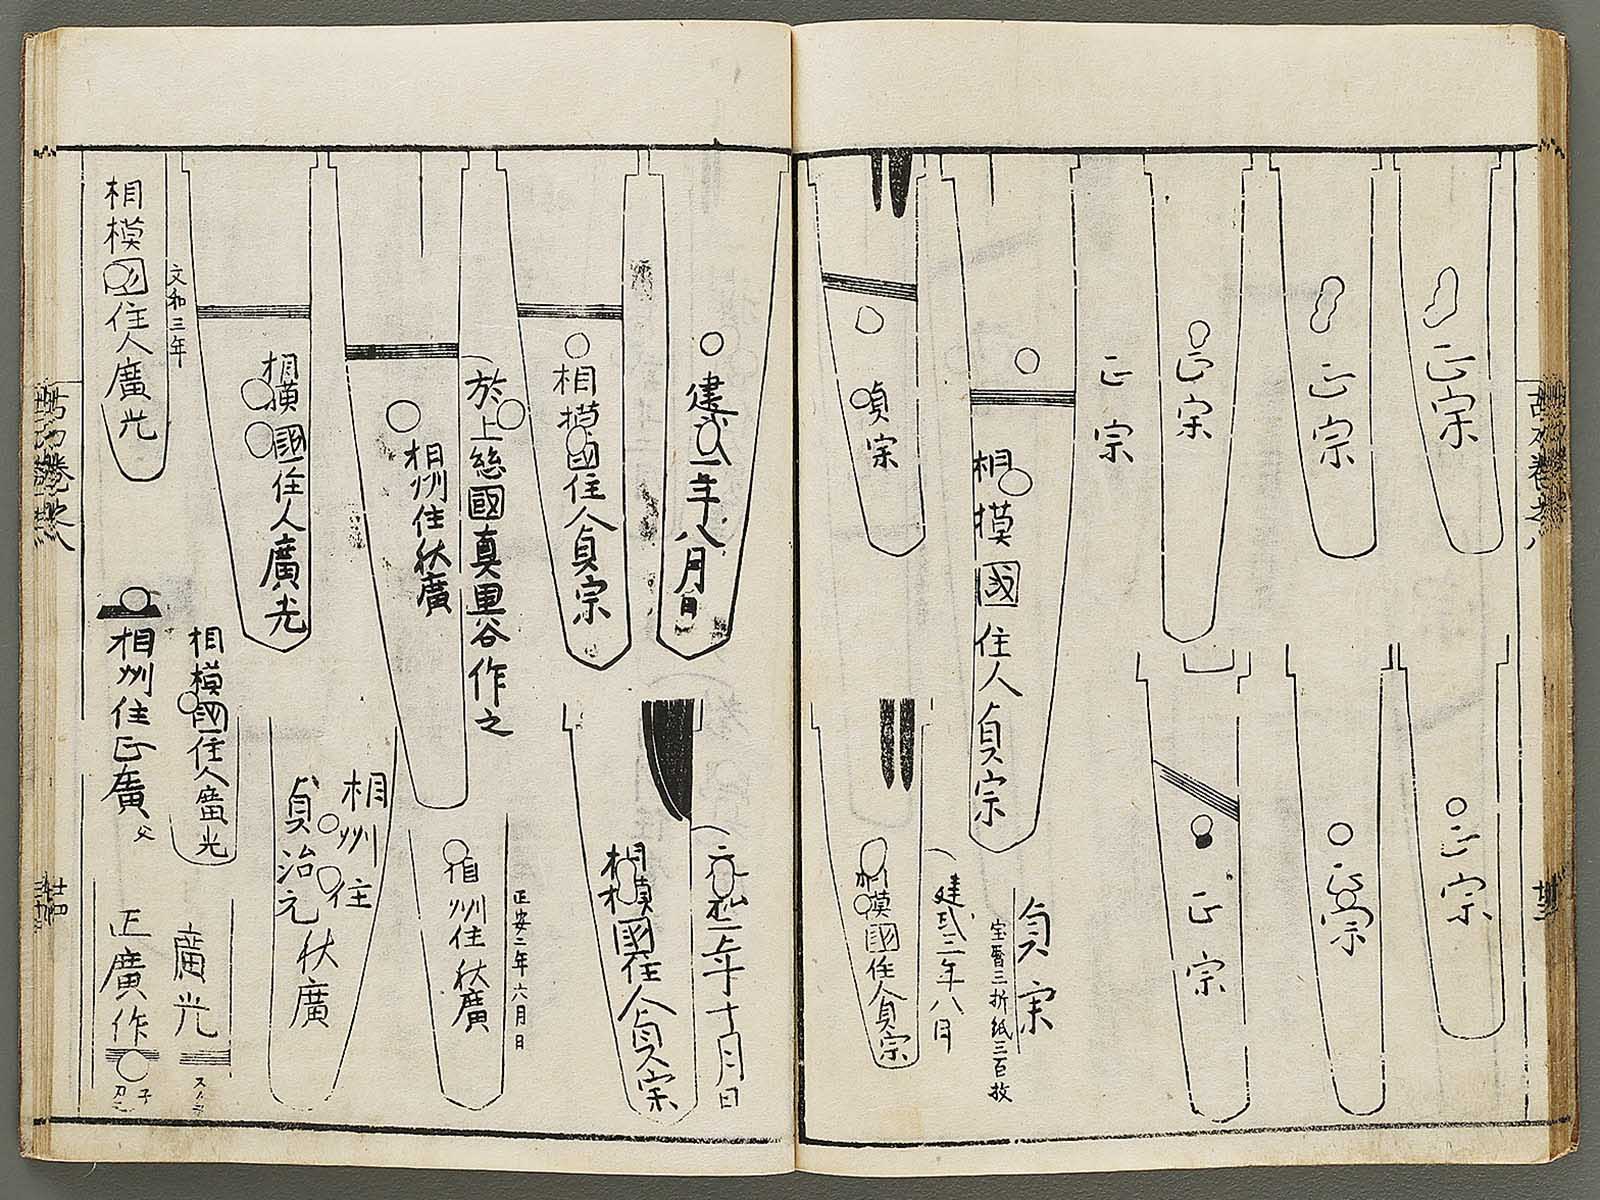 正宗
正宗
正宗
正宗
正宗
正宗
正宗
相模國住人貞宗
貞宗
宝暦三折紙三百枚
貞宗
建武三年八月
相模國住人貞宗
建武二年八月日
相模國住人貞宗
相模國住人貞宗
於上総國真里谷作之
相州住秋廣
正安二年六月日
相州住秋廣
相模國住人廣光
相州住秋廣
貞治元
文和三年
相模國住人廣光
相模國住人廣光
廣光
相州住正廣
父
正廣作
子